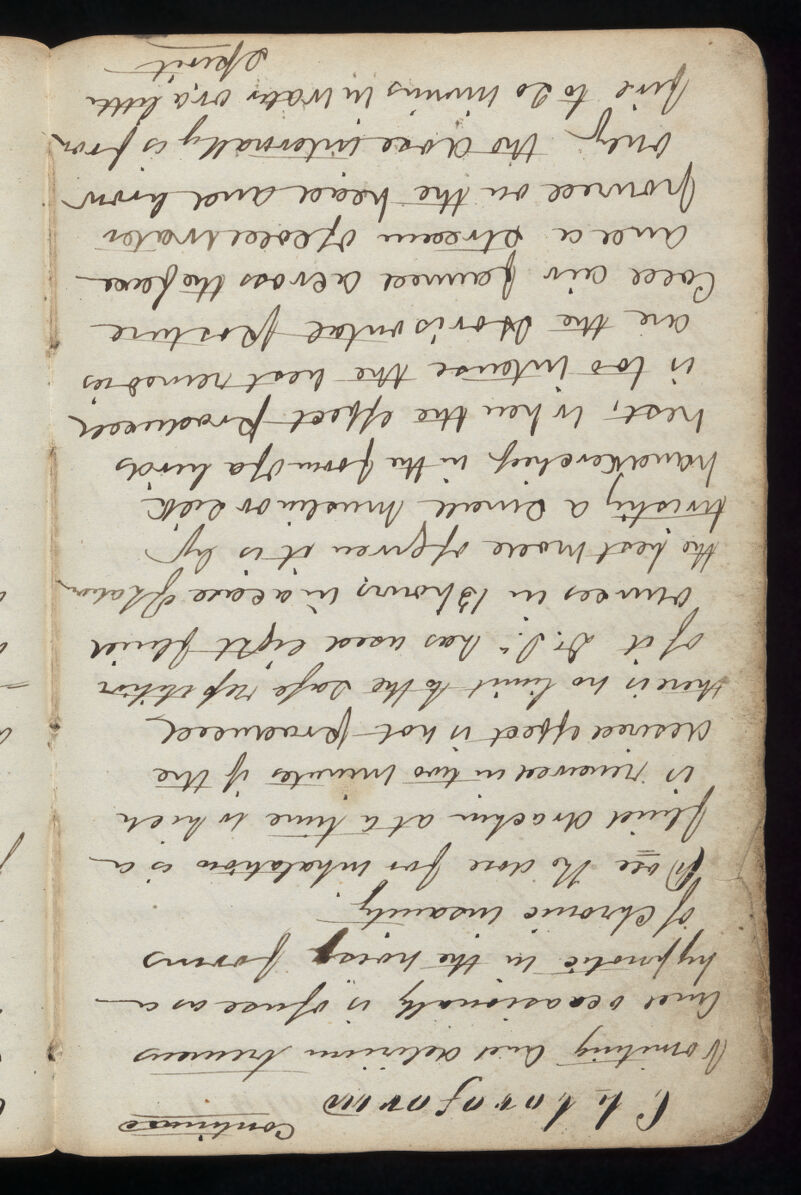 Continued
Chloroform
Vomiting and delirium tremens
and occasionally is of use as a
hypnotic in the noisy forms
of chronic insanity
Dose The dose for inhalation is a
fluid drachm at a time which
is renewed in two minutes if the
desired effect is not produced
there is no limit to the safe repetition
of it Dr. S. has used eight fluid
ounces in 13 hours, in a case of
the best mode of given it is by
twisting a small muslin or silk
handkerchief in the form of a birds
nest, When the effect produced
is too intense the best remedies
are the Horisontal posture
Cold air fanned across the face
and a stream of cold water
poured on the head and brow
only the dose internally is from
five to 20 minims in water or a little
spirit